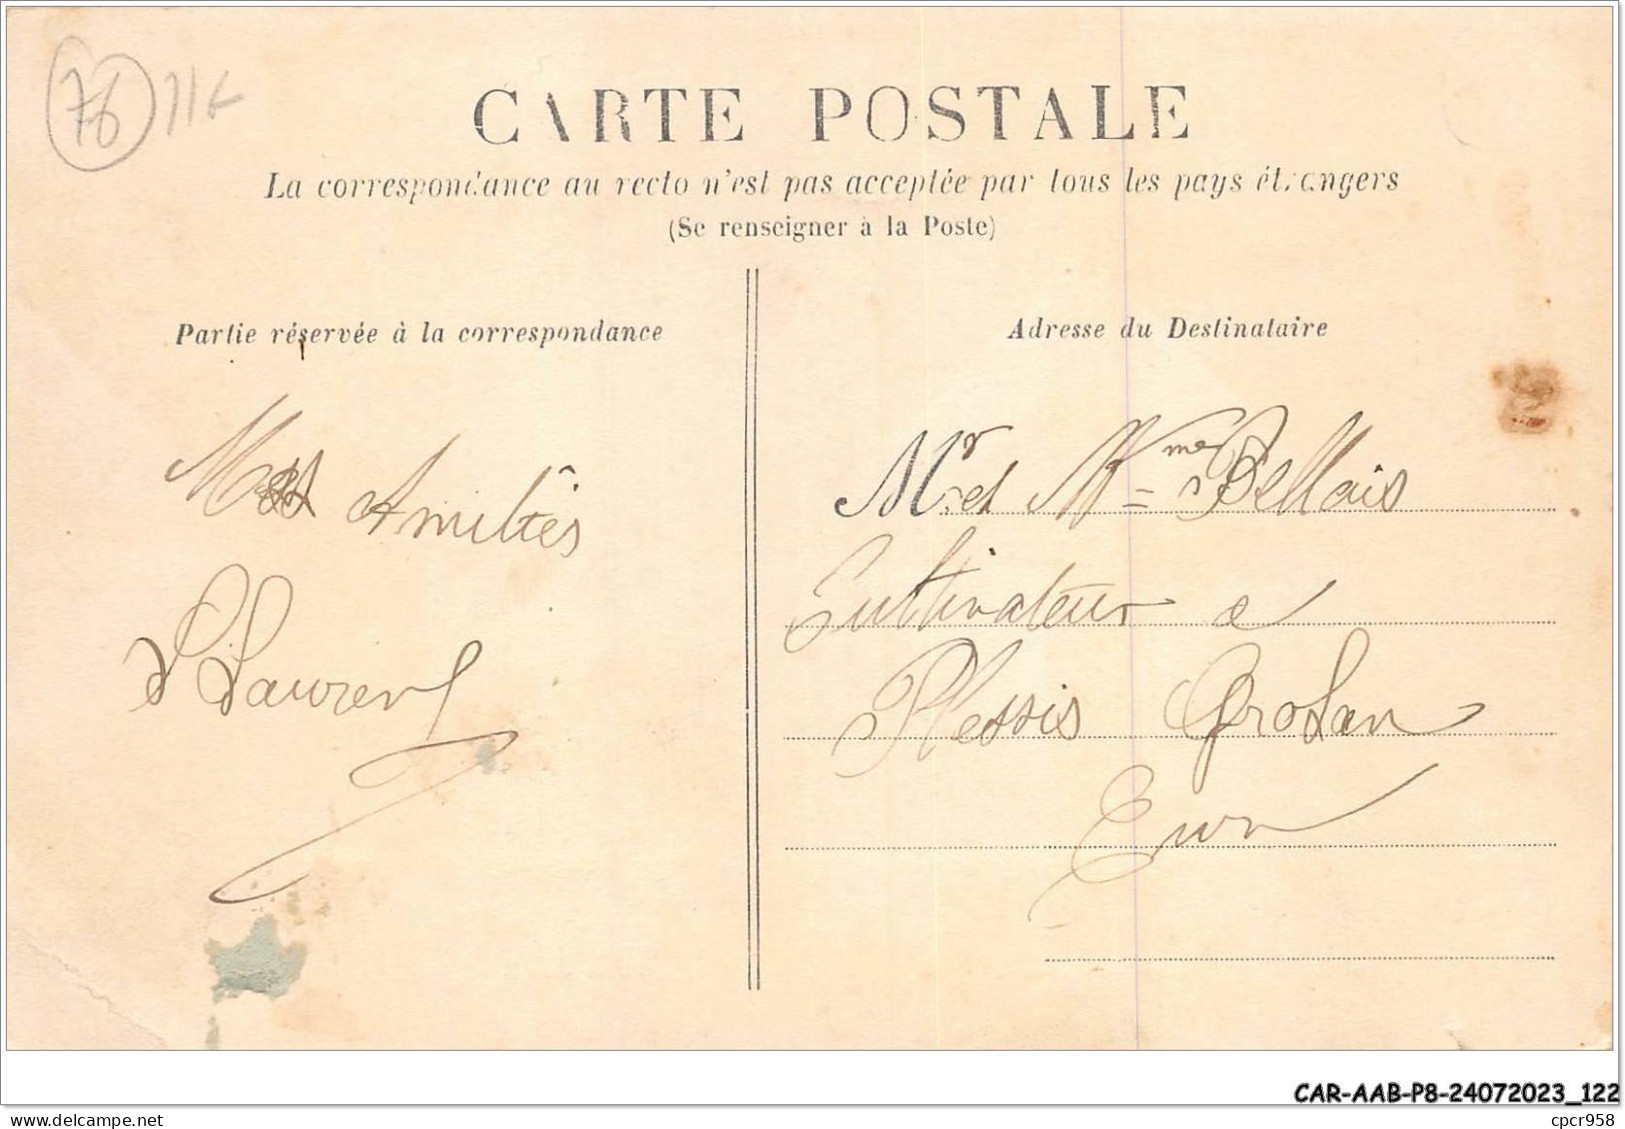 76 11€
CARTE POSTALE
La correspondance au recto n'est pas acceptée par tous les pays étrangers
(Se renseigner à la Poste)
Partie réservée à la correspondance
Adresse du Destinataire
Amitiés
Laurent
Mr et Mme Bellais
Cultivateur a
Plessis Grohan
Eure
CAR-AAB-P8-24072023_122
cpcr958